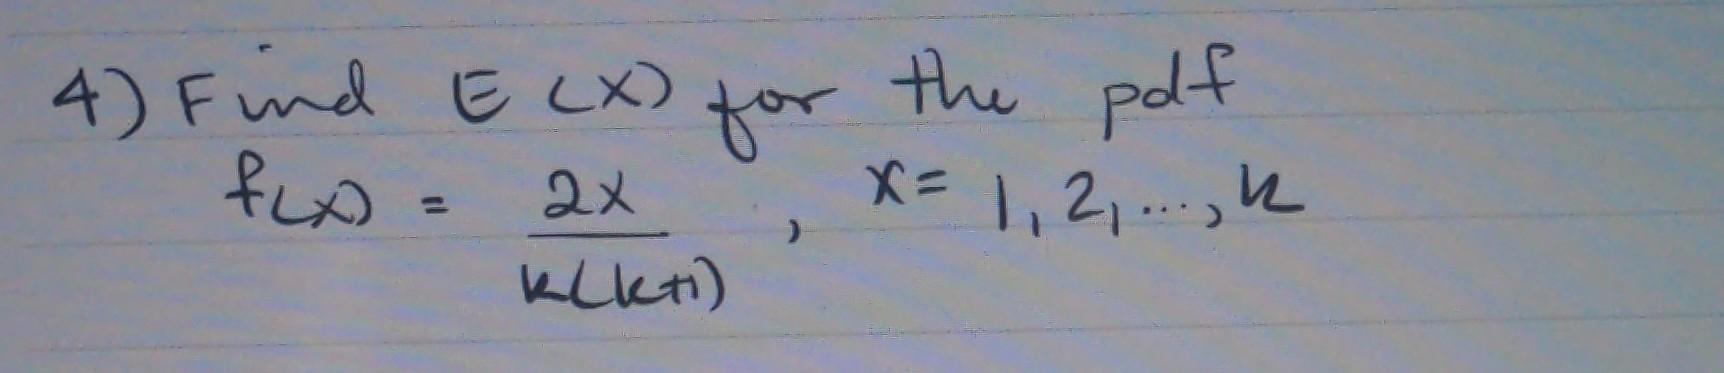 4) Find E(X) for the pdf
f(x) = 2x / k(k+1) , x = 1, 2, ..., k